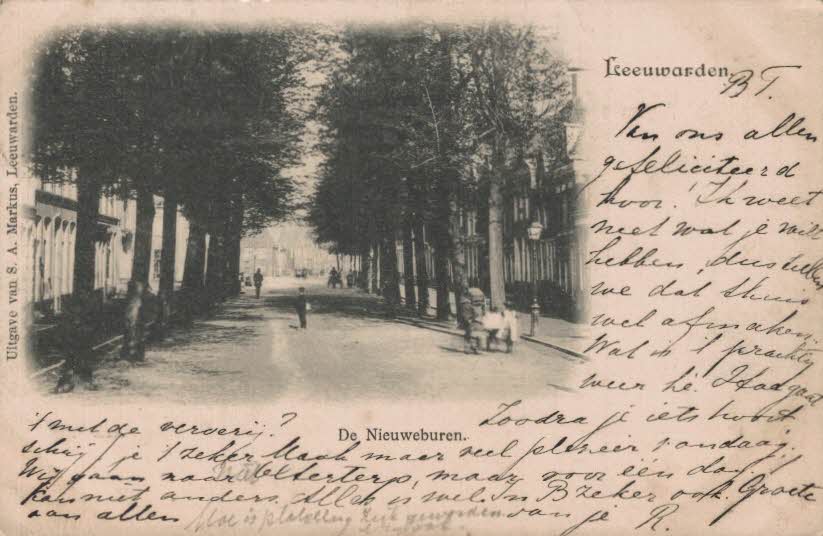 Leeuwarden.
BT.
Van ons allen
gefeliciteerd
hoor! Ik weet
niet wat je wilt
hebben, dus zullen
we dat thuis
wel afmaken.
Wat is 't prachtig
weer hè. Hoe gaat
't met de ververij? Zoodra je iets hoort
schrijf je 't zeker. Maak maar veel plezier vandaag.
Wij gaan naar Oelterterp, maar voor één dag.
Kan niet anders. Alles is wel. In B zeker ook. Groete
aan allen van je R.
Hoe is
De Nieuweburen.
Uitgave van S. A. Markus, Leeuwarden.